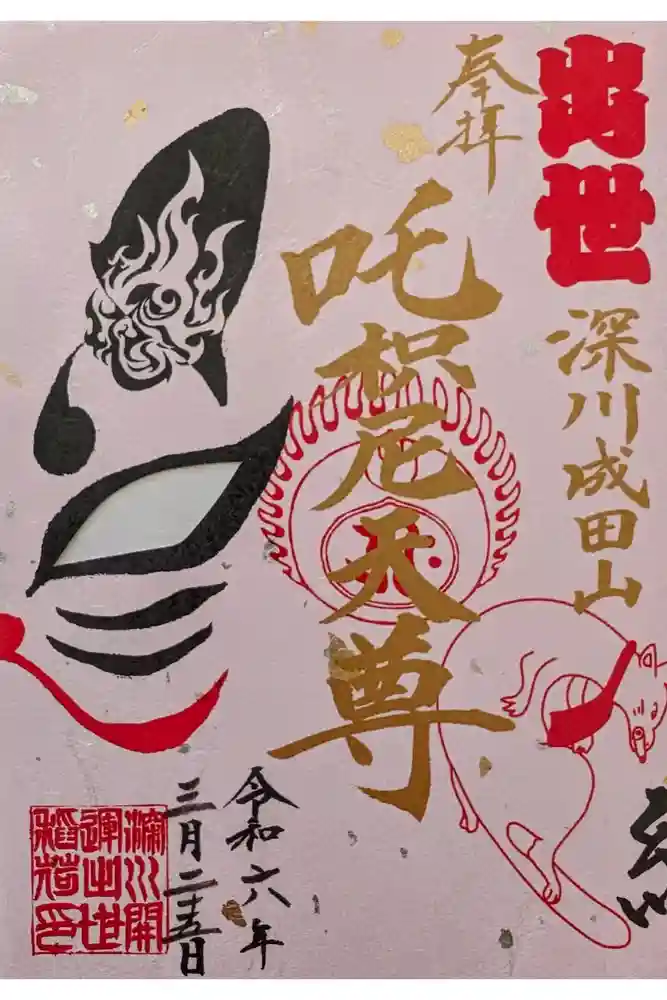 出世
深川成田山
奉拝
吒枳尼天尊
令和六年
三月二十五日
深川開
運出世
稲荷印